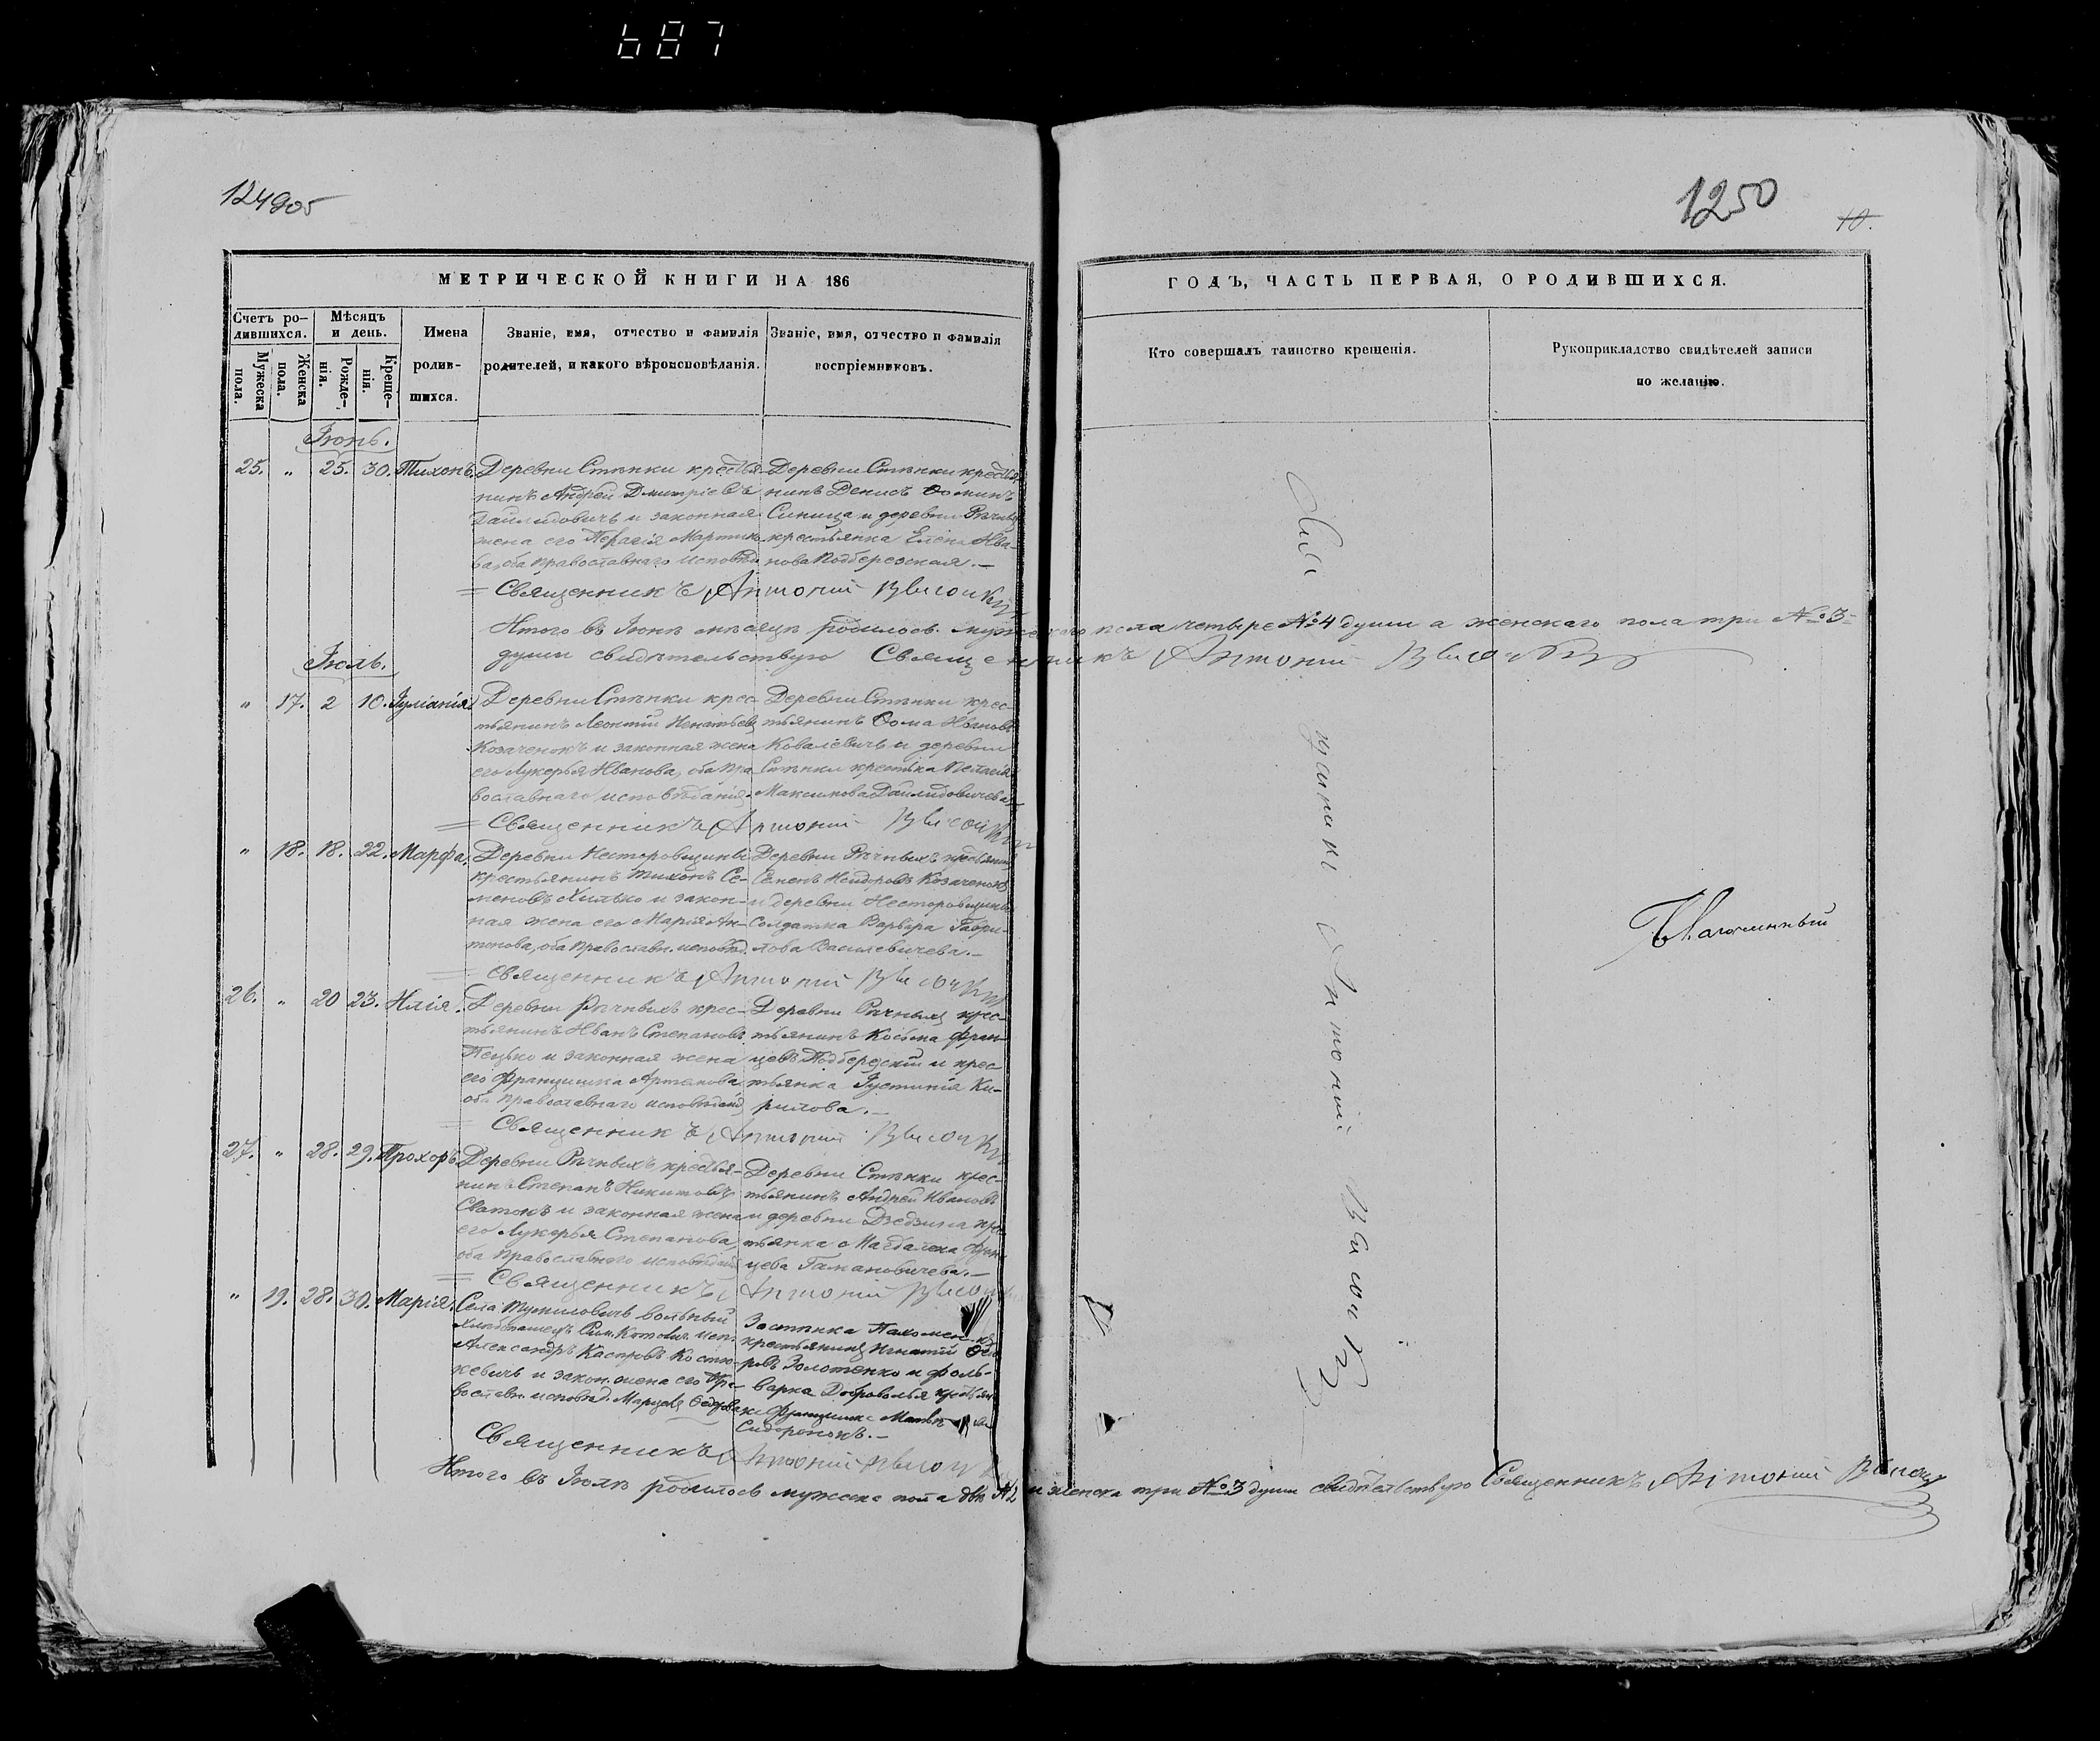 687
1249об
1250
10.
МЕТРИЧЕСКОЙ КНИГИ НА 186
ГОДЪ, ЧАСТЬ ПЕРВАЯ, О РОДИВШИХСЯ.
Счетъ ро-
дившихся.
Мужеска
пола.
Женска
пола.
Мѣсяцъ
и день.
Рожде-
нія.
Креще-
нія.
Имена
родив-
шихся.
Званіе, имя, отчество и фамилія
родителей, и какого вѣроисповѣданія.
Званіе, имя, отчество и фамилія
воспріемниковъ.
Кто совершалъ таинство крещенія.
Рукоприкладство свидѣтелей записи
по желанію.
Іюнь.
25. " 25. 30. Тихонъ.
Деревни Стѣнки крестья-
нинъ Андрей Дмитріевъ
Дайлидовичъ и законная
жена его Мартино-
ва, оба православнаго исповѣд
Деревни Стѣнки крестья
нинъ Денисъ Ѳоминъ
Синица и деревни Рѣчныхъ
крестьянка Елена Ива-
нова Подберезская.—
Священникъ Антоній
Итого въ Іюнѣ мѣсяцѣ родилось мужескаго пола четыре №4 души а женскаго пола три №3=
души свидѣтельствую Священникъ Антоній
Іюль.
" 17. 2 10. Іуліанія
Деревни Стѣнки крес-
тьянинъ Леонтій Игнатьевъ
Козаченокъ и законная жена
его Лукерья Иванова, оба пра
вославнаго исповѣданія.
Деревни Стѣнки крес-
тьянинъ Ѳома Ивановъ
Ковалевичъ и деревни
Стѣнки крестьянка Пелагія
Максимова Дайлидовичева.
Священникъ Антоній
" 18. 18. 22. Марфа.
Деревни Несторовщины
крестьянинъ Тихонъ Се-
меновъ Хилько и закон-
ная жена его Марія Ан-
тонова, оба православн. исповѣд.
Деревни Рѣчныхъ крестьянинъ
Семенъ Исидоровъ Козаченокъ
и деревни Несторовщины
солдатка Варвара Гаври-
лова Василевичева.—
Священникъ Антоній
26. " 20 23. Илія.
Деревни Рѣчныхъ крес-
тьянинъ Иванъ Степановъ
Пецько и законная жена
его Францишка Артемова
оба православнаго исповѣданія
Деревни Рѣчныхъ крес-
тьянинъ Косьма Фран-
цевъ Подберезскій и крес
тьянка Іустинія Ки-
рилова.—
Священникъ Антоній
27. " 28. 29. Прохоръ.
Деревни Рѣчныхъ крестья-
нинъ Степанъ Никитовъ
Сватокъ и законная жена
его Лукерья Степанова
оба православнаго исповѣданія
Деревни Стѣнки крес-
тьянинъ Андрей Ивановъ
и деревни крес
тьянка Магдалена Фран
цева Гамановичева.—
Священникъ Антоній
" 19. 28. 30. Марія.
Села вольный
хлѣбопашецъ Рим. Католич. исп.
Александръ Касперовъ Костю-
кевичъ и закон. жена его пра-
вославн. исповѣд. Ѳедорова
Застѣнка
крестьянинъ Игнатій
Золотенко и фоль-
варка Доброволья крестьян
ка Францишка
Сидоронокъ.—
Священникъ Антоній
Итого въ Іюлѣ родилось мужеска пола два №2 и женска три №3 души свидѣтельствую Священникъ Антоній
Священникъ Антоній
Благочинный